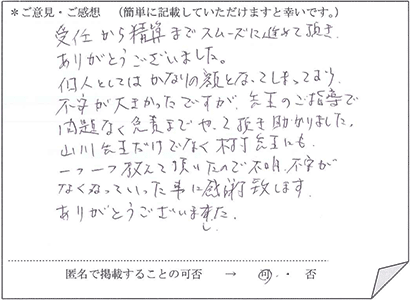 *ご意見・ご感想　(簡単に記載していただけますと幸いです。)
受任から精算までスムーズに進めて頂き
ありがとうございました。
個人としてはかなりの額となってしまっており
不安が大きかったですが、先生のご指導で
問題なく免責までやって頂き助かりました。
山川先生だけでなく村村先生にも
一つ一つ教えて頂いたので不明、不安が
なくなっていった事に感謝致します。
ありがとうございました。
匿名で掲載することの可否　→　可・否